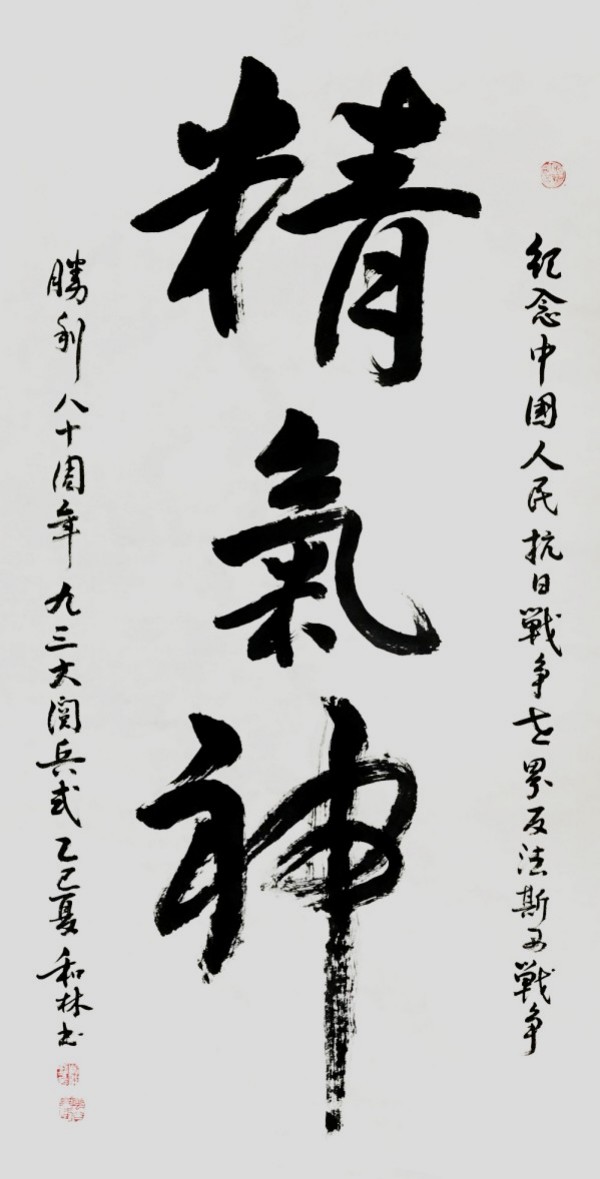 紀念中國人民抗日戰争世界反法斯西戰争
精氣神
勝利八十周年九三大閲兵式乙巳夏和林书